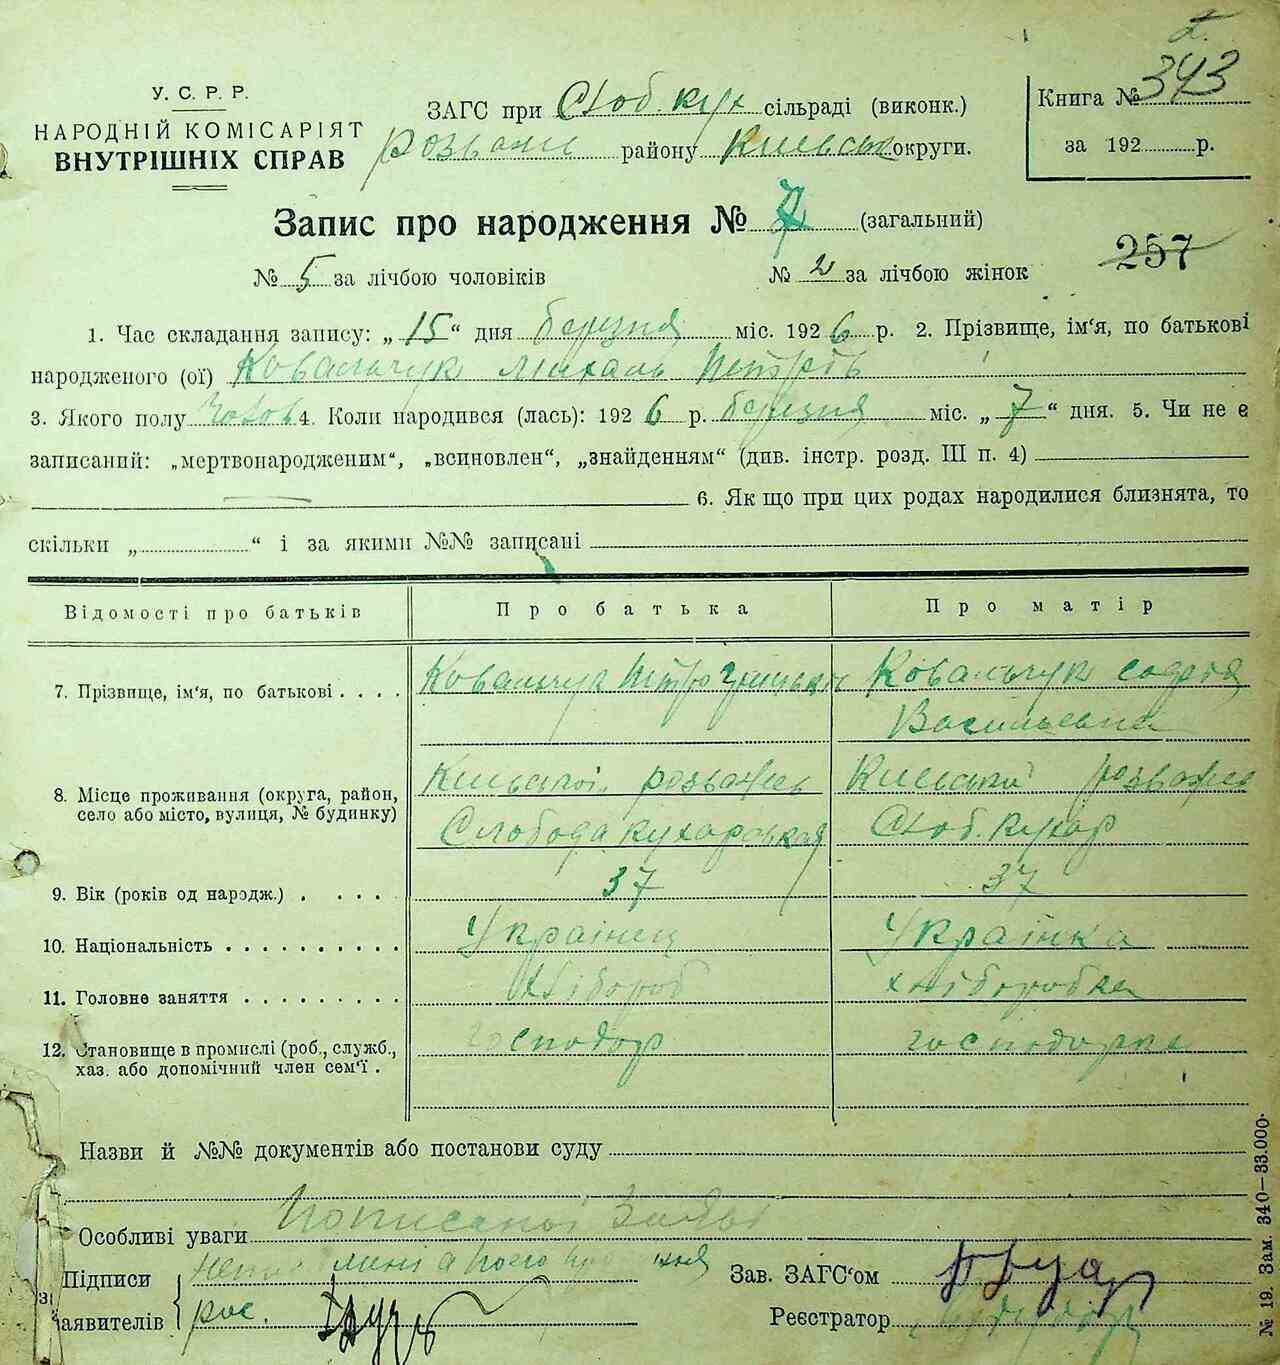 343
У. С. Р. Р.
НАРОДНІЙ КОМІСАРІЯТ
ВНУТРІШНІХ СПРАВ
ЗАГС при Слоб. кух сільраді (виконк.)
Розваж району Київськ округи.
Книга №
за 192 р.
Запис про народження № 7 (загальний)
№ 5 за лічбою чоловіків № 2 за лічбою жінок
257
1. Час складання запису: „15“ дня березня міс. 1926 р. 2. Прізвище, ім'я, по батькові
народженого (ої) Ковальчук Михаль Петрів
3. Якого полу Чолов 4. Коли народився (лась): 1926 р. березня міс. „7“ дня. 5. Чи не є
записаний: „мертвонародженим“, „всиновлен“, „знайденням“ (див. інстр. розд. III п. 4)
6. Як що при цих родах народилися близнята, то
скільки „ “ і за якими №№ записані
Відомості про батьків Про батька Про матір
7. Прізвище, ім'я, по батькові Ковальчук Петро Ковальчук Софія
Васильевна
8. Місце проживання (округа, район, Київської розважев Київської розважев
село або місто, вулиця, № будинку) Слобода кухарська Слоб. кухар
9. Вік (років од народж.) 37 37
10. Національність Украінец Украінка
11. Головне заняття хлібороб хліборобка
12. Становище в промислі (роб., служб., господар господарка
хаз. або допомічний член сем'ї.
Назви й №№ документів або постанови суду
Особливі уваги
Підписи
заявителів
Зав. ЗАГС'ом
Реєстратор
№ 19. Зам. 340—33.000.